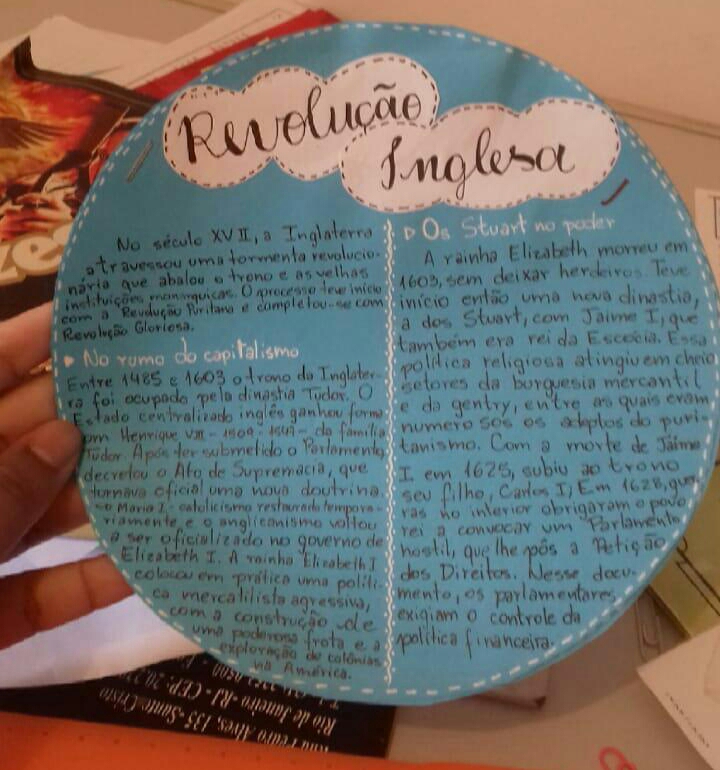 Revolução
Inglesa
No século XVII, a Inglaterra
atravessou uma tormenta revolucio-
nária que abalou o trono e as velhas
instituições monárquicas. O processo teve início
com a Revolução Puritana e completou-se com
Revolução Gloriosa.
▸ No rumo do capitalismo
Entre 1485 e 1603 o trono da Inglater-
ra foi ocupado pela dinastia Tudor. O
Estado centralizado inglês ganhou forma
om Henrique VIII - 1509 - 1547 - da família
Tudor. Após ter submetido o Parlamento,
decretou o Ato de Supremacia, que
tornava oficial uma nova doutrina.
Maria I - catolicismo restaurado tempora-
riamente, e o anglicanismo voltou
a ser oficializado no governo de
Elizabeth I. A rainha Elizabeth I
colocou em prática uma políti-
ca mercatilista agressiva,
com a construção de
uma poderosa frota e a
exploração de colônias
na América.
▹ Os Stuart no poder
A rainha Elizabeth morreu em
1603, sem deixar herdeiros. Teve
início então uma nova dinastia,
a dos Stuart, com Jaime I, que
também era rei da Escócia. Essa
política religiosa atingiu em cheio
setores da burguesia mercantil
e da gentry, entre as quais eram
numero sos os adeptos do puri-
tanismo. Com a morte de Jaime
I em 1625, subiu ao trono
seu filho, Carlos I; Em 1628, guer
ras no interior obrigaram o povo
rei a convocar um Parlamento
hostil, que lhe pôs a Petição
dos Direitos. Nesse docu-
mento, os parlamentares
exigiam o controle da
política financeira.
Pedro Alves, 135 - Santo Cristo
Rio de Janeiro - RJ - CEP: 20.22